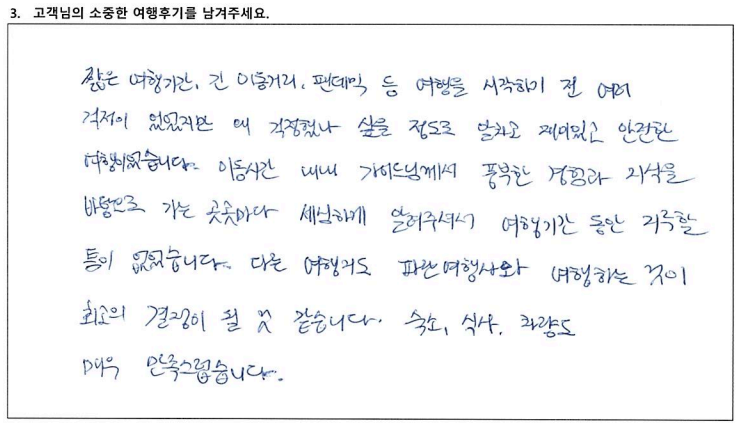 3. 고객님의 소중한 여행후기를 남겨주세요.
짧은 여행기간, 긴 이동거리, 팬데믹 등 여행을 시작하기 전 여러
걱정이 있었지만 왜 걱정했나 싶을 정도로 알차고 재미있고 안전한
여행이었습니다. 이동시간 내내 가이드님께서 풍부한 경험과 지식을
바탕으로 가는 곳곳마다 세심하게 알려주셔서 여행기간 동안 지루할
틈이 없었습니다. 다른 여행지도 파란여행사와 여행하는 것이
최고의 결정이 될 것 같습니다. 숙소, 식사, 차량도
매우 만족스럽습니다.